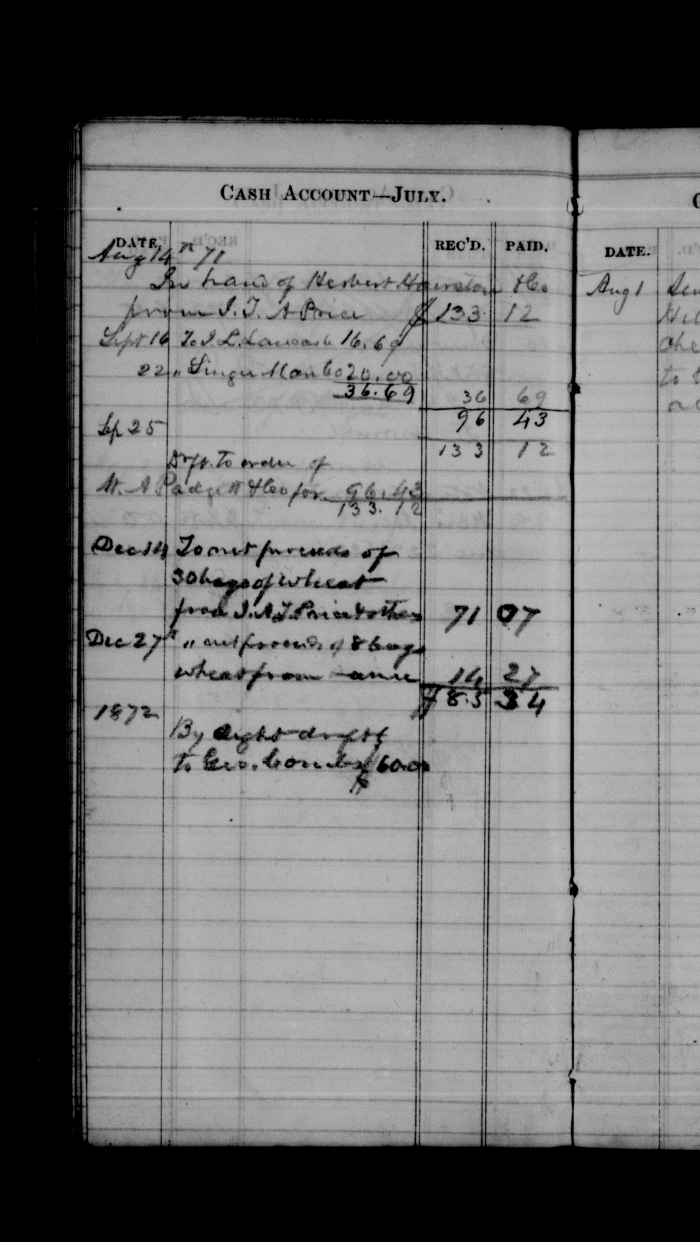 CASH ACCOUNT—JULY.
DATE. REC'D. PAID.
Aug 14th 71
In hand of Herbert & Co
from I. T. A Price $ 133 12
Sept 16 To I L Lancash 16.69
22 " Singer Man Co 20.00
36.69 36 69
96 43
Sep 25
133 12
Drft. to order of
W. A Padgett & Co for 96.43
133.12
Dec 14 To net proceeds of
30 bags of wheat
from I. A. T. Price & others 71 07
Dec 27th " net proceeds of 8 bags
wheat from same 14 27
$ 85 34
1872
By sight draft
to Geo. Combs $60.00
DATE.
Aug 1